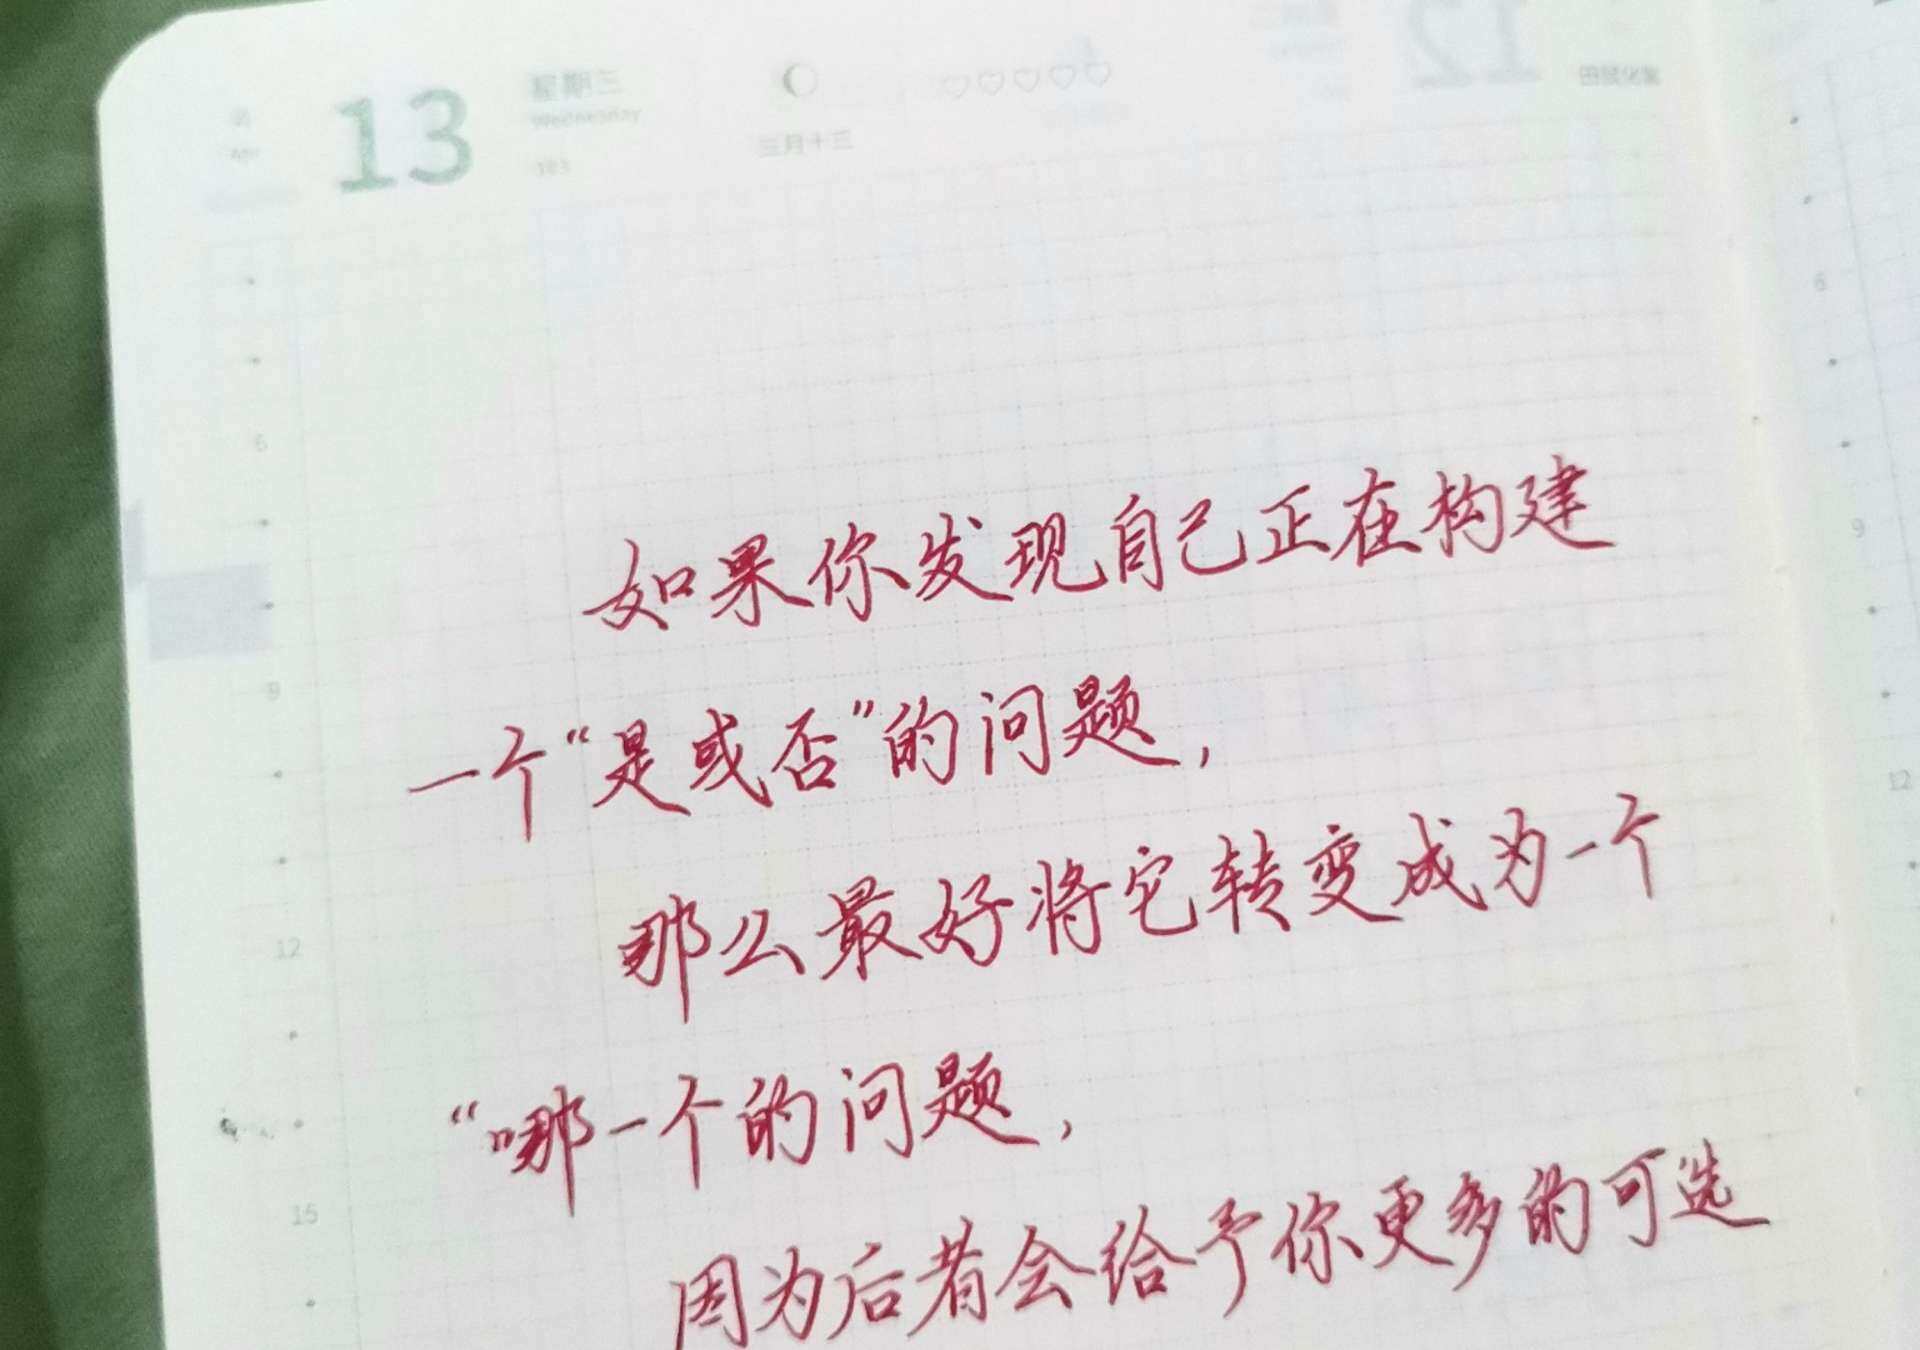 13
星期三
Wednesday
103
三月十三
12
田鼠化鴽
如果你发现自己正在构建
一个“是或否”的问题，
那么最好将它转变成为一个
“哪一个的问题，
因为后者会给予你更多的可选
6
9
12
15
6
9
12